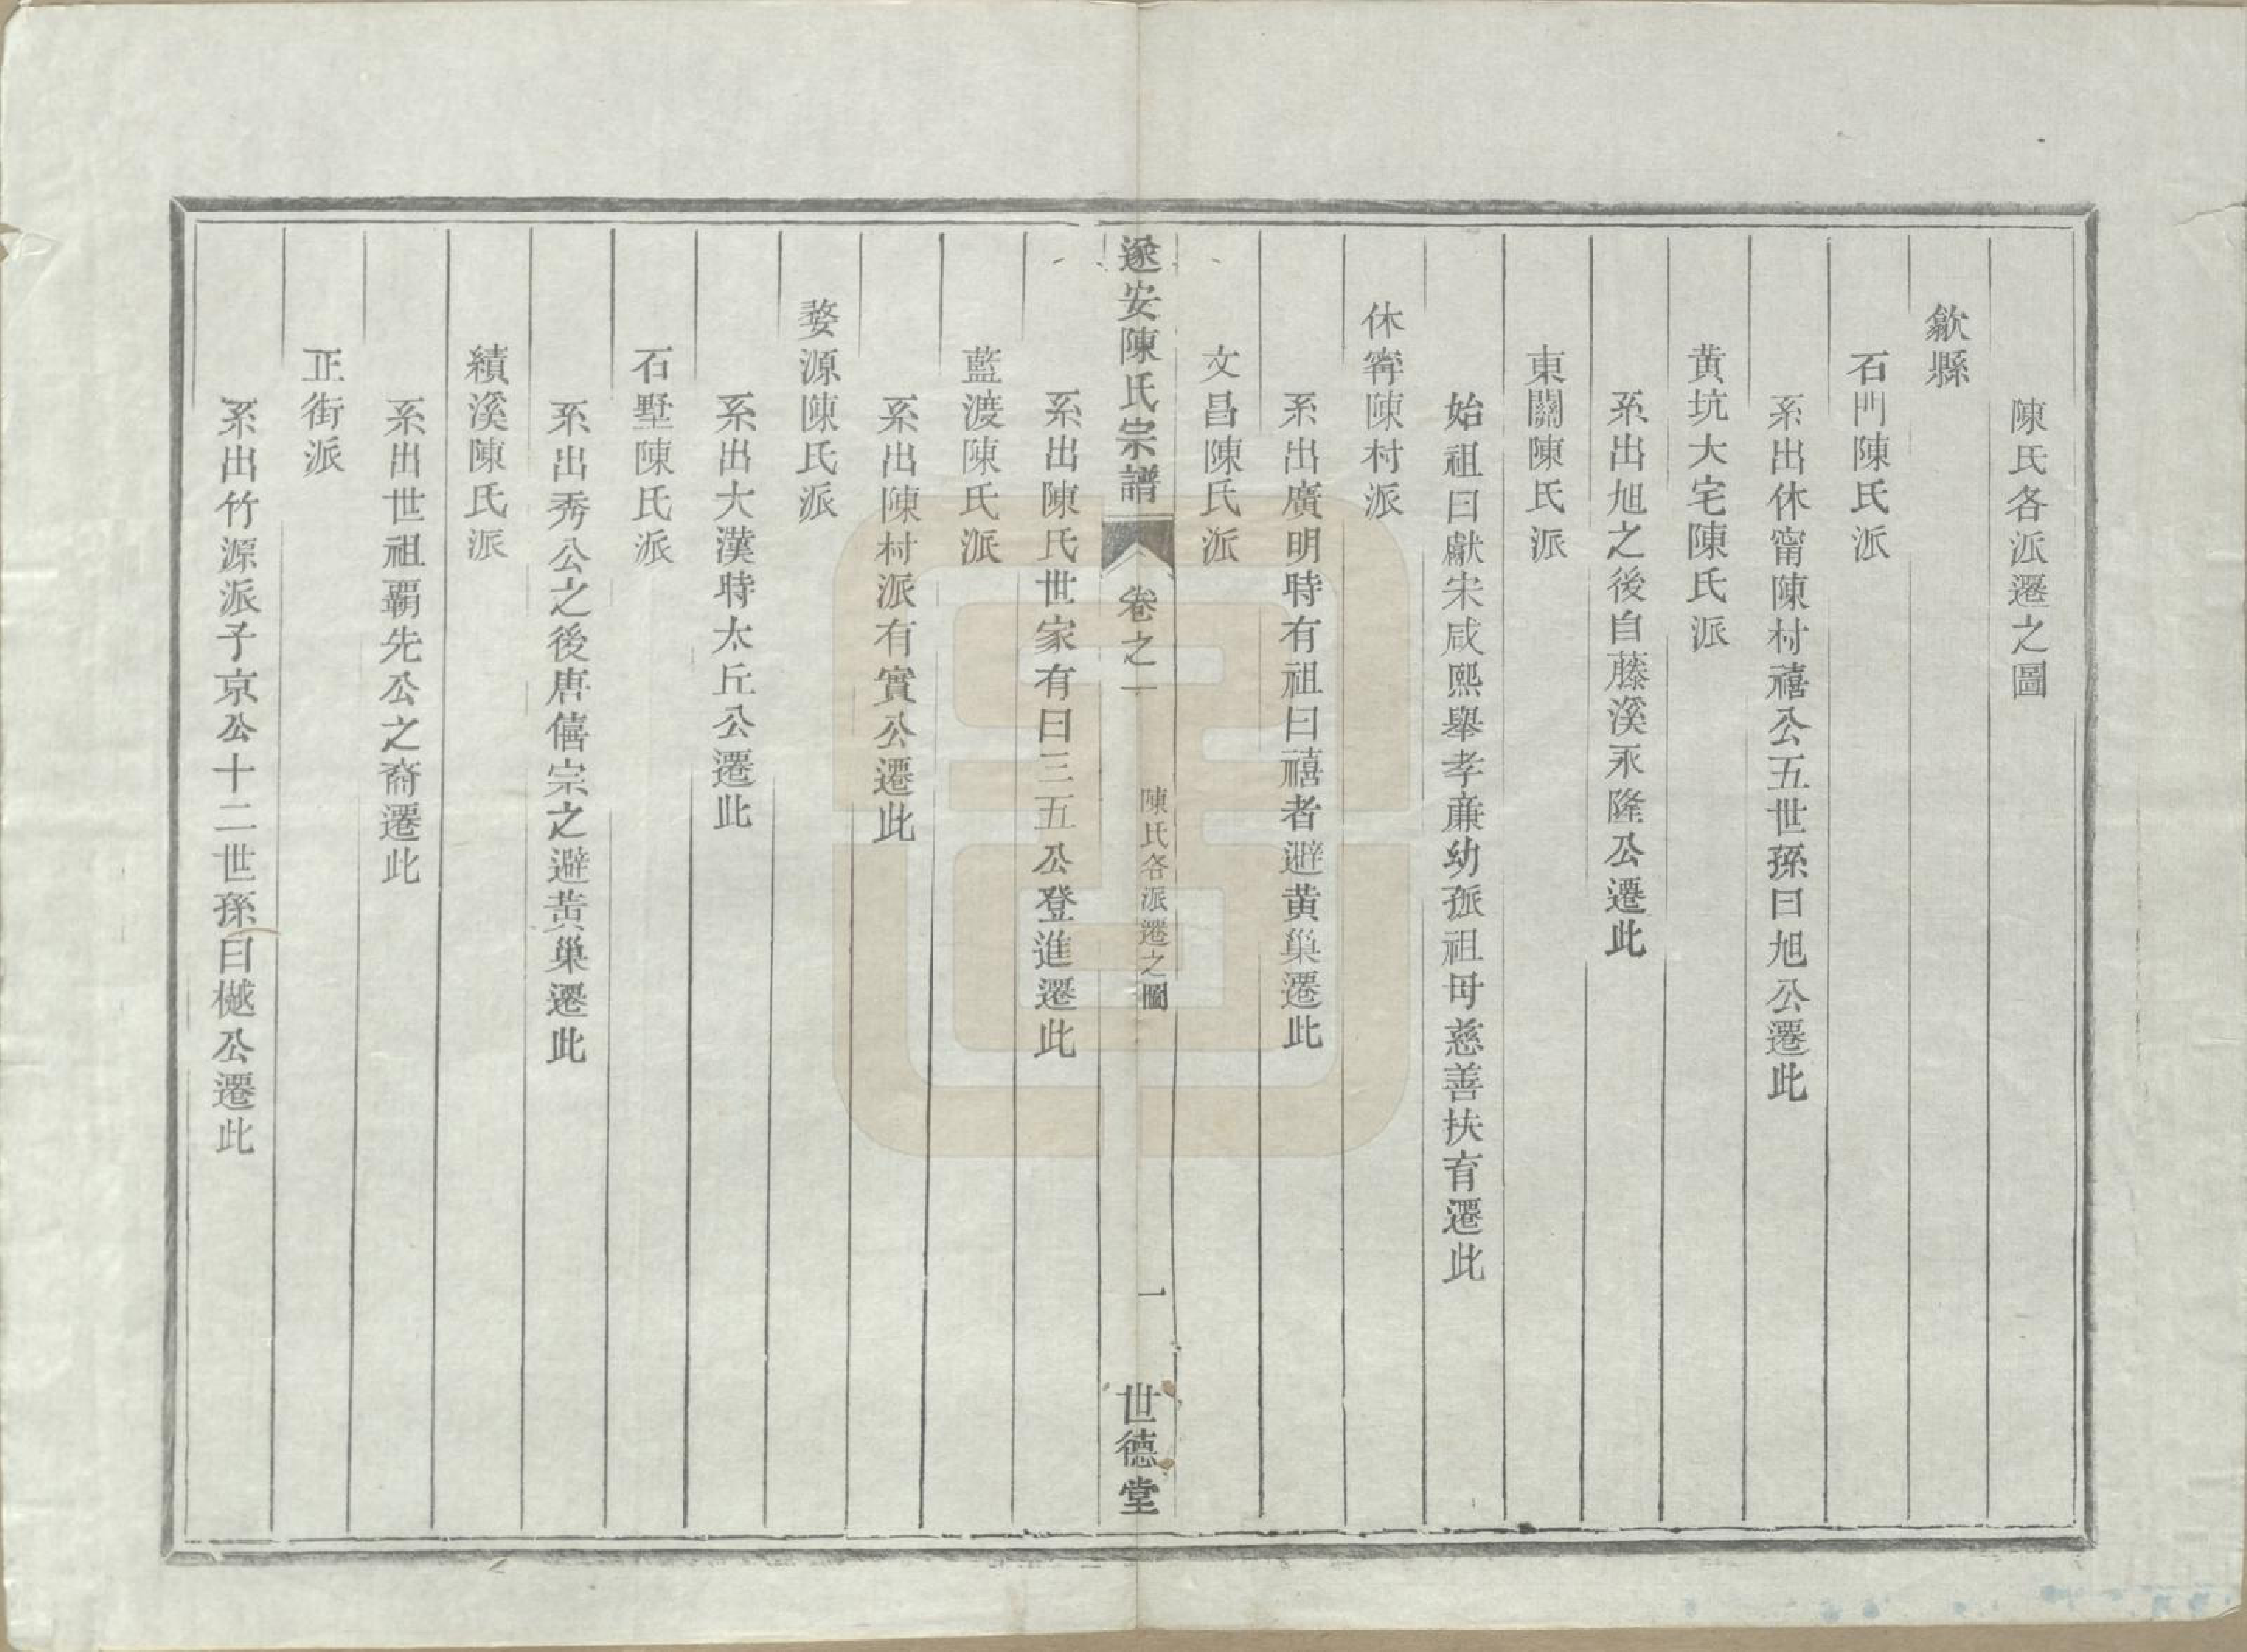 陳氏各派遷之圖
歙縣
石門陳氏派
系出休甯陳村禧公五世孫曰旭公遷此
黄坑大宅陳氏派
系出旭之後自藤溪永隆公遷此
東關陳氏派
始祖曰獻宋咸熙舉孝廉幼孤祖母慈善扶育遷此
休甯陳村派
系出廣明時有祖曰禧者避黄巢遷此
文昌陳氏派
遂安陳氏宗譜
卷之一
陳氏各派遷之圖
一
世德堂
系出陳氏世家有曰三五公登進遷此
藍渡陳氏派
系出陳村派有實公遷此
婺源陳氏派
系出大漢時太丘公遷此
石墅陳氏派
系出秀公之後唐僖宗之避黄巢遷此
績溪陳氏派
系出世祖覇先公之裔遷此
正街派
系出竹源派子京公十二世孫曰樾公遷此